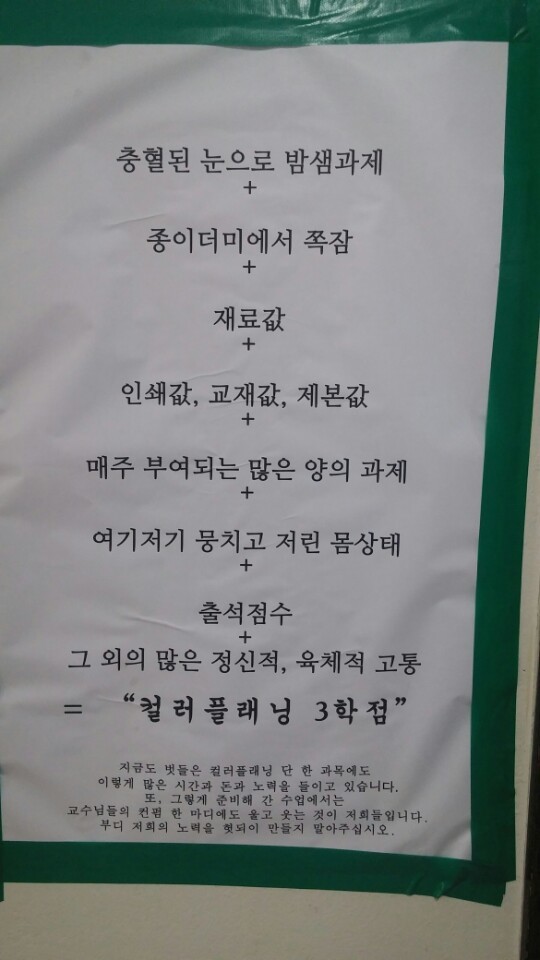 충혈된 눈으로 밤샘과제
+
종이더미에서 쪽잠
+
재료값
+
인쇄값, 교재값, 제본값
+
매주 부여되는 많은 양의 과제
+
여기저기 뭉치고 저린 몸상태
+
출석점수
+
그 외의 많은 정신적, 육체적 고통
= “컬러플래닝 3학점”
지금도 벗들은 컬러플래닝 단 한 과목에도
이렇게 많은 시간과 돈과 노력을 들이고 있습니다.
또, 그렇게 준비해 간 수업에서는
교수님들의 컨펌 한 마디에도 울고 웃는 것이 저희들입니다.
부디 저희의 노력을 헛되이 만들지 말아주십시오.